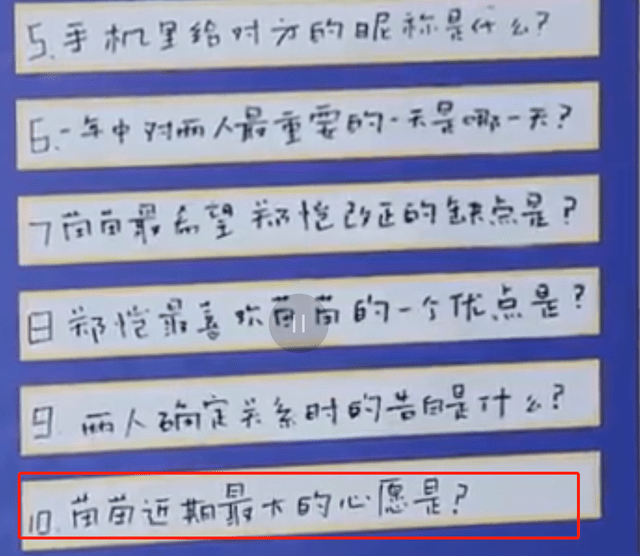 5.手机里给对方的昵称是什么?
6.一年中对两人最重要的一天是哪一天?
7苗苗最希望郑恺改正的缺点是?
8郑恺最喜欢苗苗的一个优点是?
9.两人确定关系时的告白是什么?
10.苗苗近期最大的心愿是?